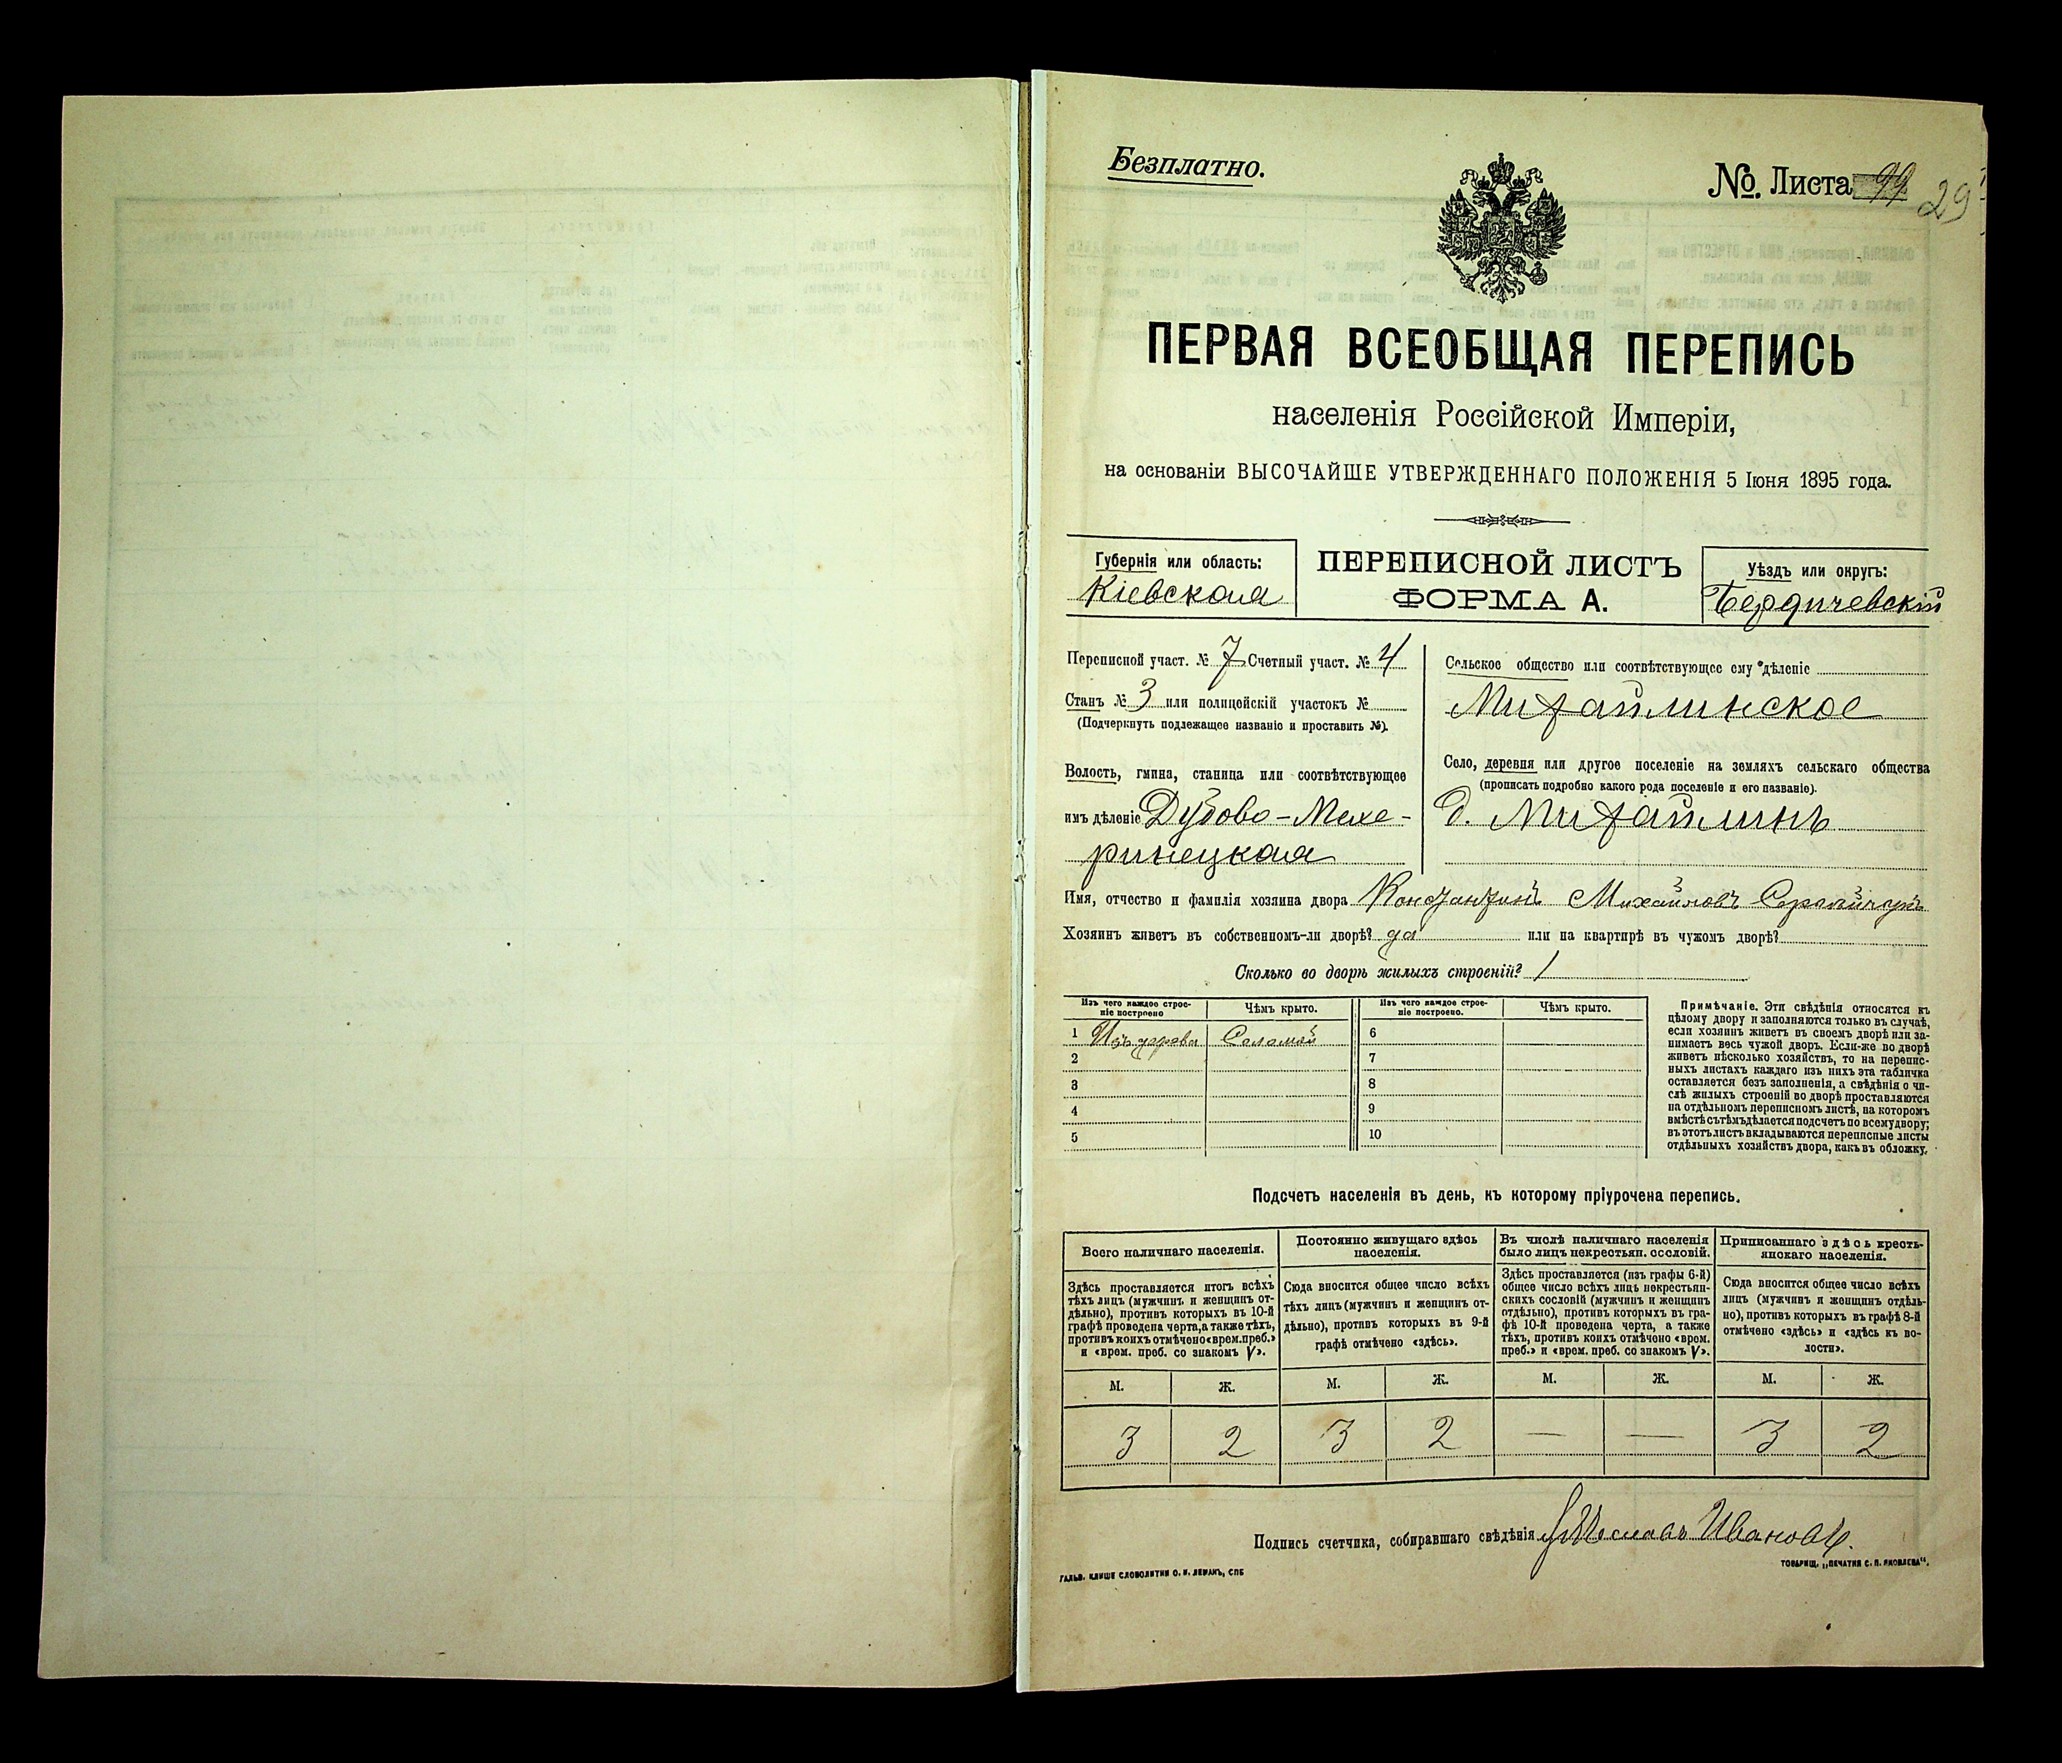 Безплатно.
№ Листа 99 29
ПЕРВАЯ ВСЕОБЩАЯ ПЕРЕПИСЬ
населенія Россійской Имперіи,
на основаніи ВЫСОЧАЙШЕ УТВЕРЖДЕННАГО ПОЛОЖЕНІЯ 5 Іюня 1895 года.
Губернія или область:
Кіевская
ПЕРЕПИСНОЙ ЛИСТЪ
ФОРМА А.
Уѣздъ или округъ:
Бердичевскій
Переписной участ. № 7 Счетный участ. № 4
Станъ № 3 или полицейскій участокъ №
(Подчеркнуть подлежащее названіе и проставить №).
Волость, гмина, станица или соотвѣтствующее
имъ дѣленіе Дубово-Мехе-
ринецкая
Сельское общество или соотвѣтствующее ему дѣленіе
Михайлинское
Село, деревня или другое поселеніе на земляхъ сельскаго общества
(прописать подробно какого рода поселеніе и его названіе).
д. Михайлинъ
Имя, отчество и фамилія хозяина двора Константинъ Михайловъ
Хозяинъ живетъ въ собственномъ-ли дворѣ? да или на квартирѣ въ чужомъ дворѣ?
Сколько во дворѣ жилыхъ строеній? 1
Изъ чего каждое строе-
ніе построено
Чѣмъ крыто.
Изъ чего каждое строе-
ніе построено.
Чѣмъ крыто.
1 Изъ дерева Соломой 6
2 7
3 8
4 9
5 10
Примѣчаніе. Эти свѣдѣнія относятся къ
цѣлому двору и заполняются только въ случаѣ,
если хозяинъ живетъ въ своемъ дворѣ или за-
нимаетъ весь чужой дворъ. Если-же во дворѣ
живетъ нѣсколько хозяйствъ, то на перепис-
ныхъ листахъ каждаго изъ нихъ эта табличка
оставляется безъ заполненія, а свѣдѣнія о чи-
слѣ жилыхъ строеній во дворѣ проставляются
на отдѣльномъ переписномъ листѣ, на которомъ
вмѣстѣ съ тѣмъ дѣлается подсчетъ по всему двору;
въ этотъ листъ вкладываются переписные листы
отдѣльныхъ хозяйствъ двора, какъ въ обложку.
Подсчетъ населенія въ день, къ которому пріурочена перепись.
Всего наличнаго населенія.
Здѣсь проставляется итогъ всѣхъ
тѣхъ лицъ (мужчинъ и женщинъ от-
дѣльно), противъ которыхъ въ 10-й
графѣ проведена черта, а также тѣхъ,
противъ коихъ отмѣчено «врем. преб.»
и «врем. преб. со знакомъ V».
Постоянно живущаго здѣсь
населенія.
Сюда вносится общее число всѣхъ
тѣхъ лицъ (мужчинъ и женщинъ от-
дѣльно), противъ которыхъ въ 9-й
графѣ отмѣчено «здѣсь».
Въ числѣ наличнаго населенія
было лицъ некрестьян. сословій.
Здѣсь проставляется (изъ графы 6-й)
общее число всѣхъ лицъ некрестьян-
скихъ сословій (мужчинъ и женщинъ
отдѣльно), противъ которыхъ въ гра-
фѣ 10-й проведена черта, а также
тѣхъ, противъ коихъ отмѣчено «врем.
преб.» и «врем. преб. со знакомъ V».
Приписаннаго здѣсь кресть-
янскаго населенія.
Сюда вносится общее число всѣхъ
лицъ (мужчинъ и женщинъ отдѣль-
но), противъ которыхъ въ графѣ 8-й
отмѣчено «здѣсь» и «здѣсь къ во-
лости».
М. Ж. М. Ж. М. Ж. М. Ж.
3 2 3 2 — — 3 2
Подпись счетчика, собиравшаго свѣдѣнія Ивановъ.
ГАЛЬВ. КЛИШЕ СЛОВОЛИТНИ О. И. ЛЕМАНЪ, СПБ
ТОВАРИЩ. „ПЕЧАТНЯ С. П. ЯКОВЛЕВА“.